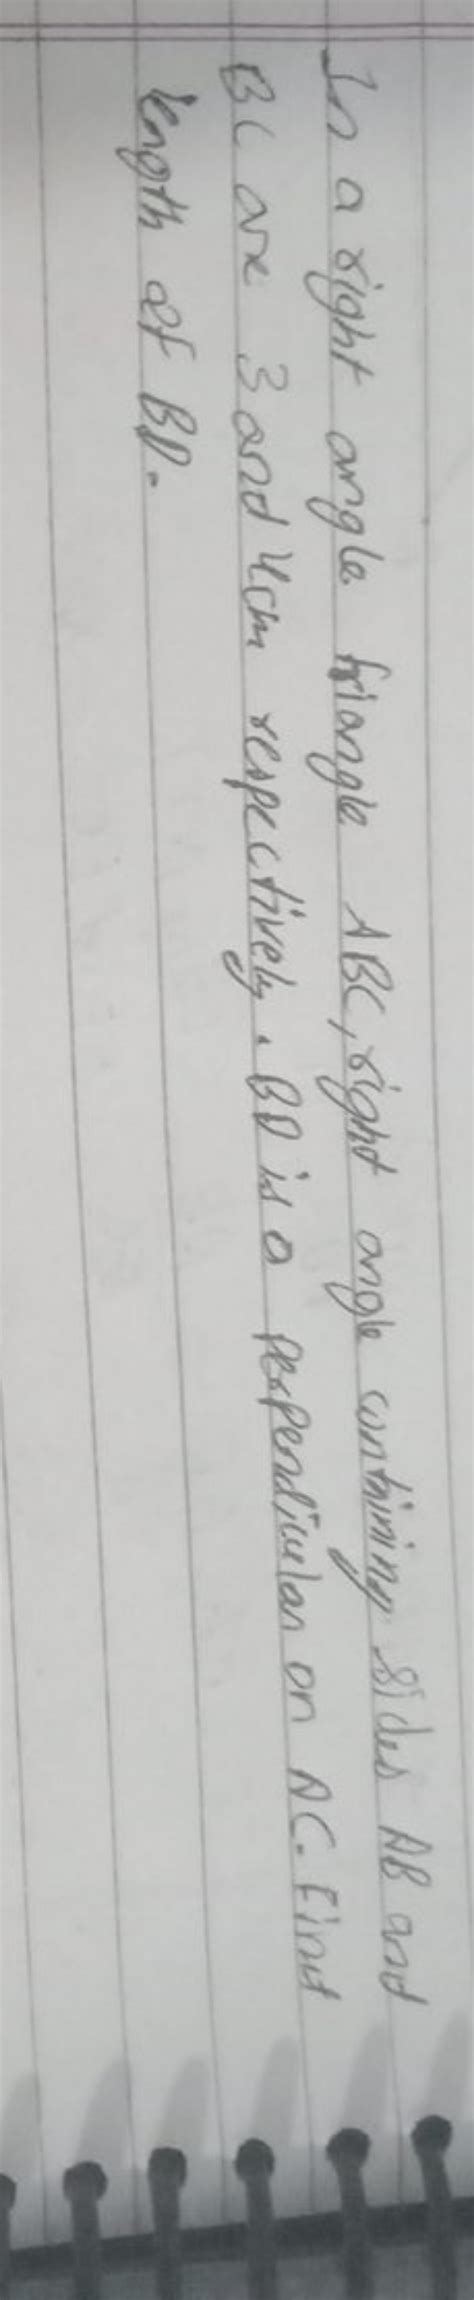 In a right angle triangle ABC, right angle containing sides AB and
BC are 3 and 4cm respectively. BD is a perpendicular on AC. Find
length of BD.